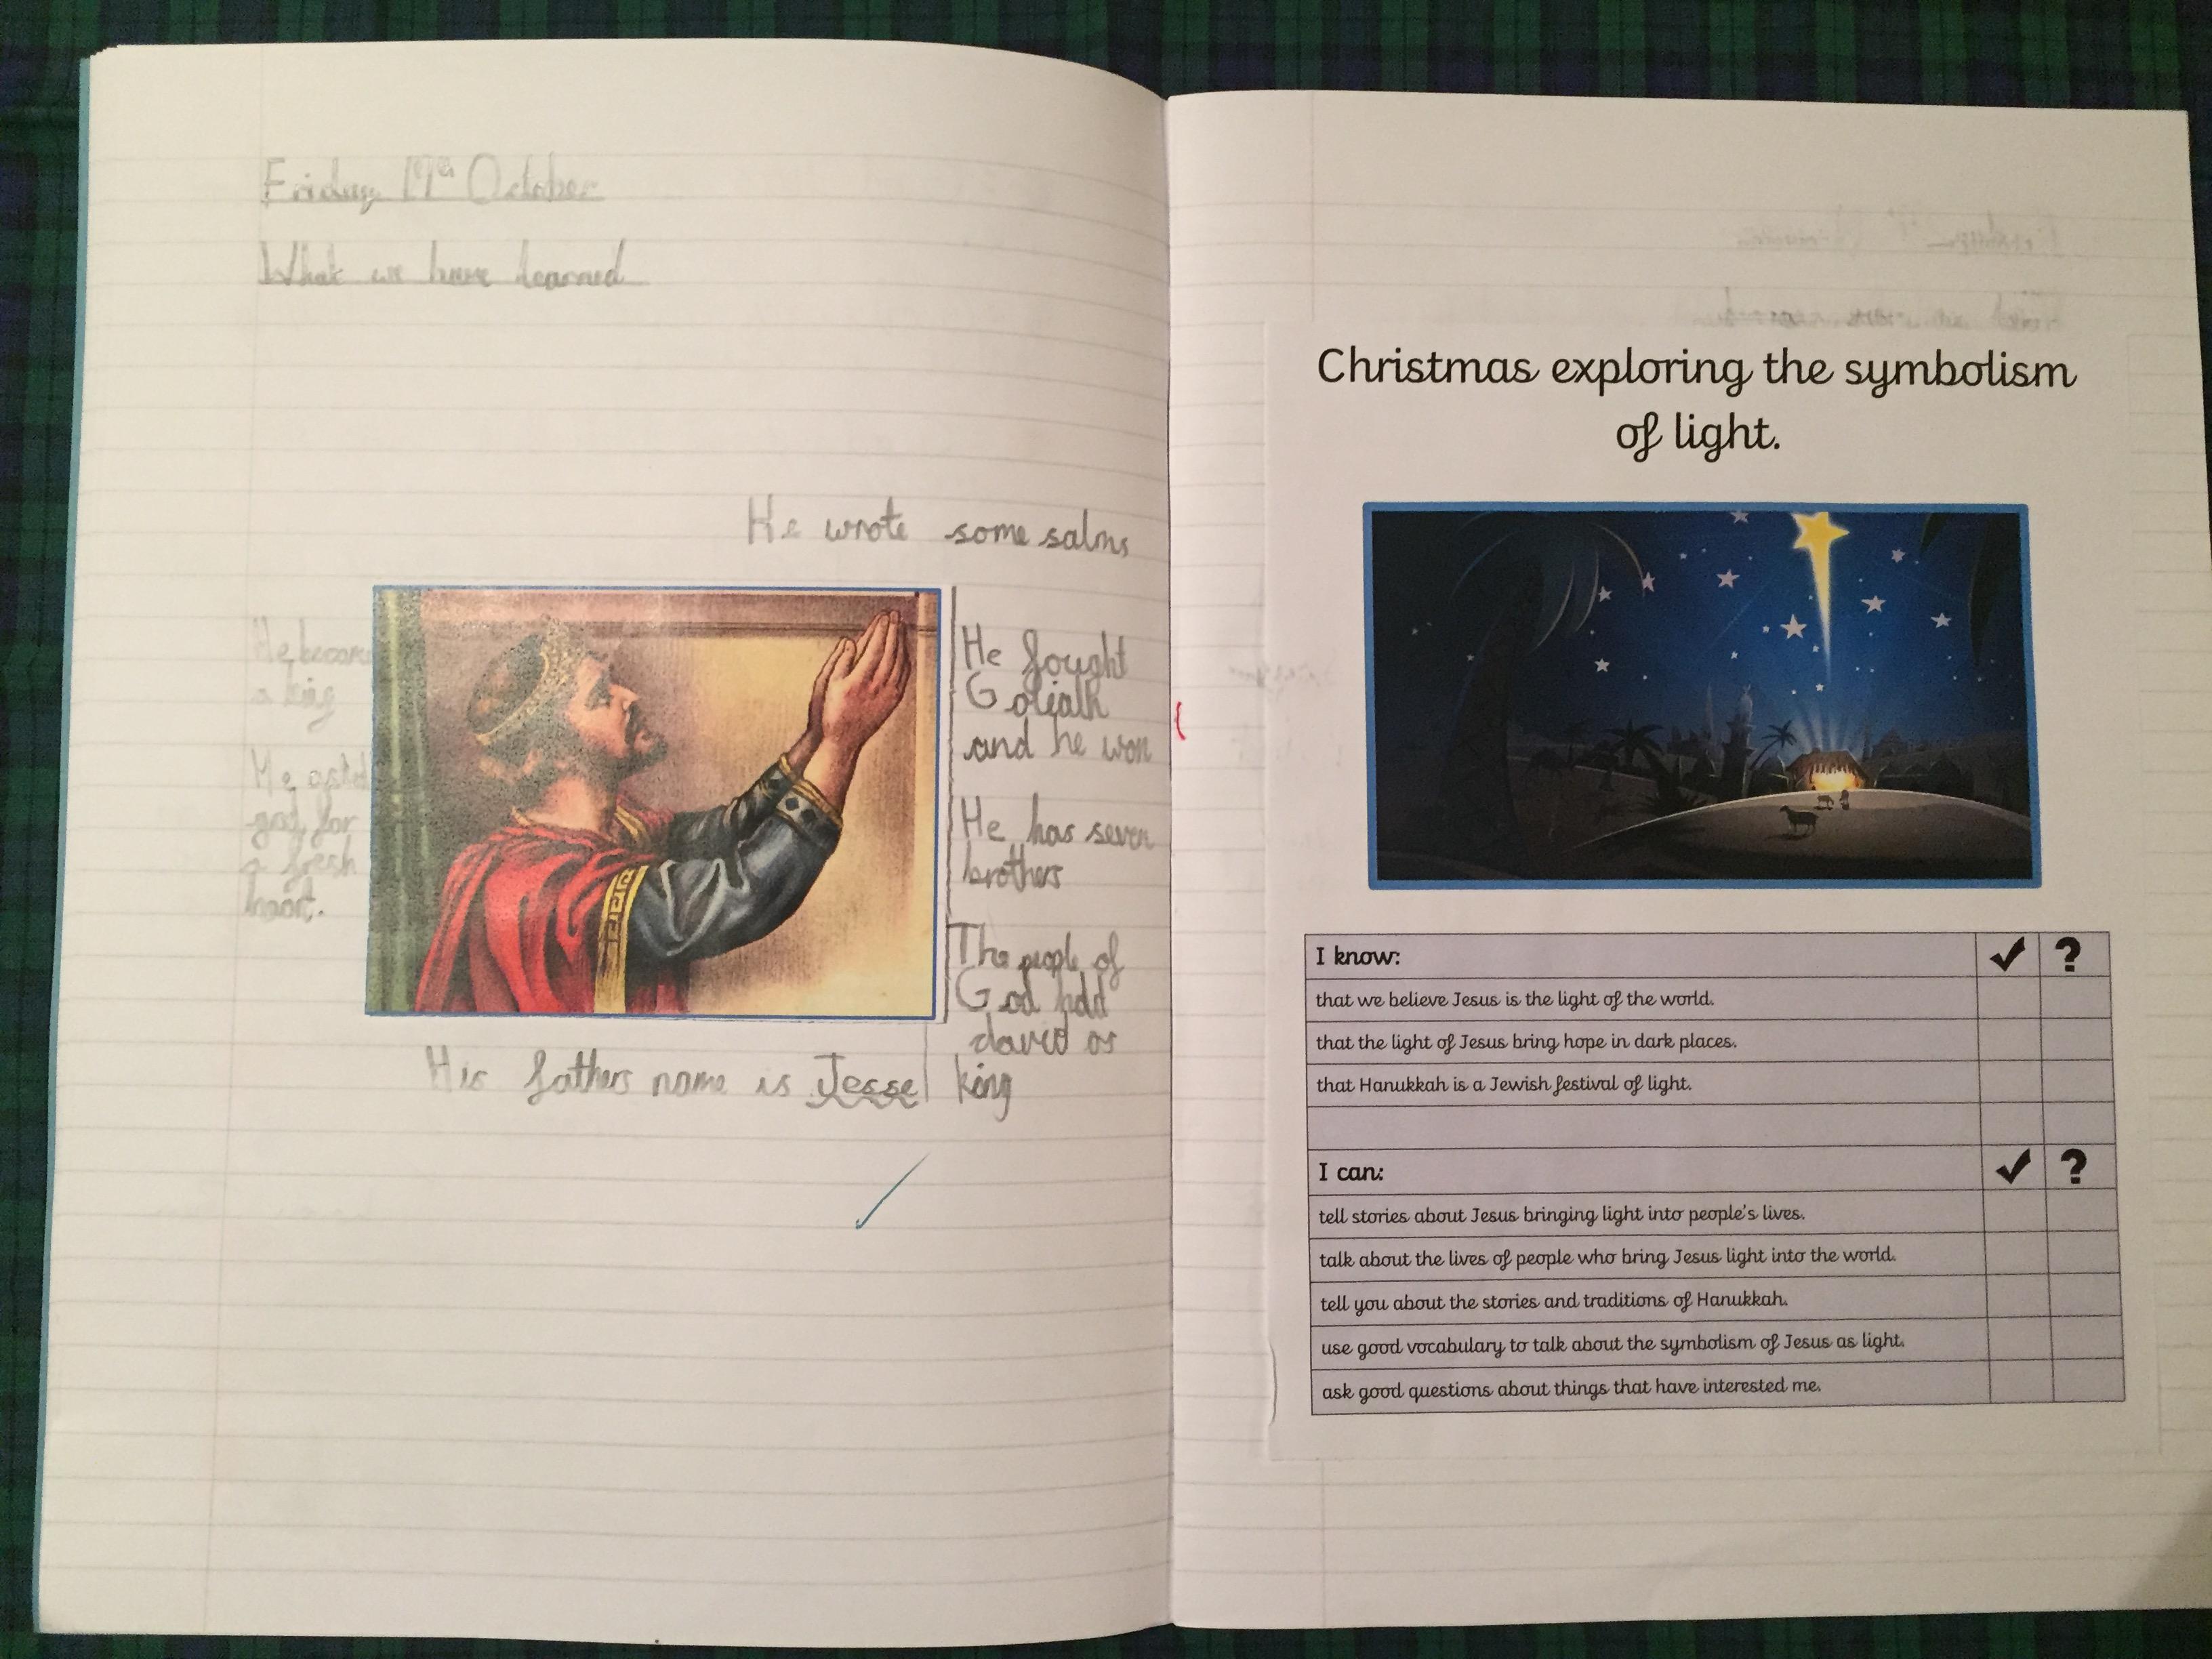 Friday 19th October
What we have learned
He wrote some salms
He became
a king
He asked
god for
a fresh
heart.
He fought
Goliath
and he won
He has seven
brothers
The people of
God hold
david as
king
His fathers name is Jesse
Christmas exploring the symbolism
of light.
I know: ✓ ?
that we believe Jesus is the light of the world.
that the light of Jesus bring hope in dark places.
that Hanukkah is a Jewish festival of light.
I can: ✓ ?
tell stories about Jesus bringing light into people's lives.
talk about the lives of people who bring Jesus light into the world.
tell you about the stories and traditions of Hanukkah.
use good vocabulary to talk about the symbolism of Jesus as light.
ask good questions about things that have interested me.